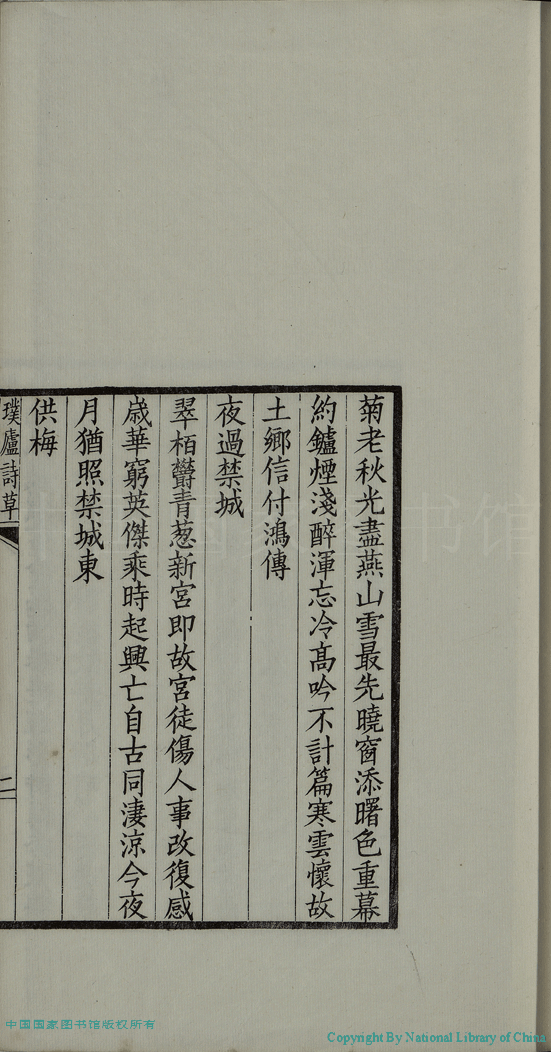 菊老秋光盡燕山雪最先曉窗添曙色重幕
約鑪煙淺醉渾忘冷高吟不計篇寒雲懷故
土鄉信付鴻傳
夜過禁城
翠栢欝青葱新宮即故宮徒傷人事改復感
歲華窮英傑乘時起興亡自古同淒涼今夜
月猶照禁城東
供梅
璞廬詩草
二
中国国家图书馆版权所有
Copyright By National Library of China